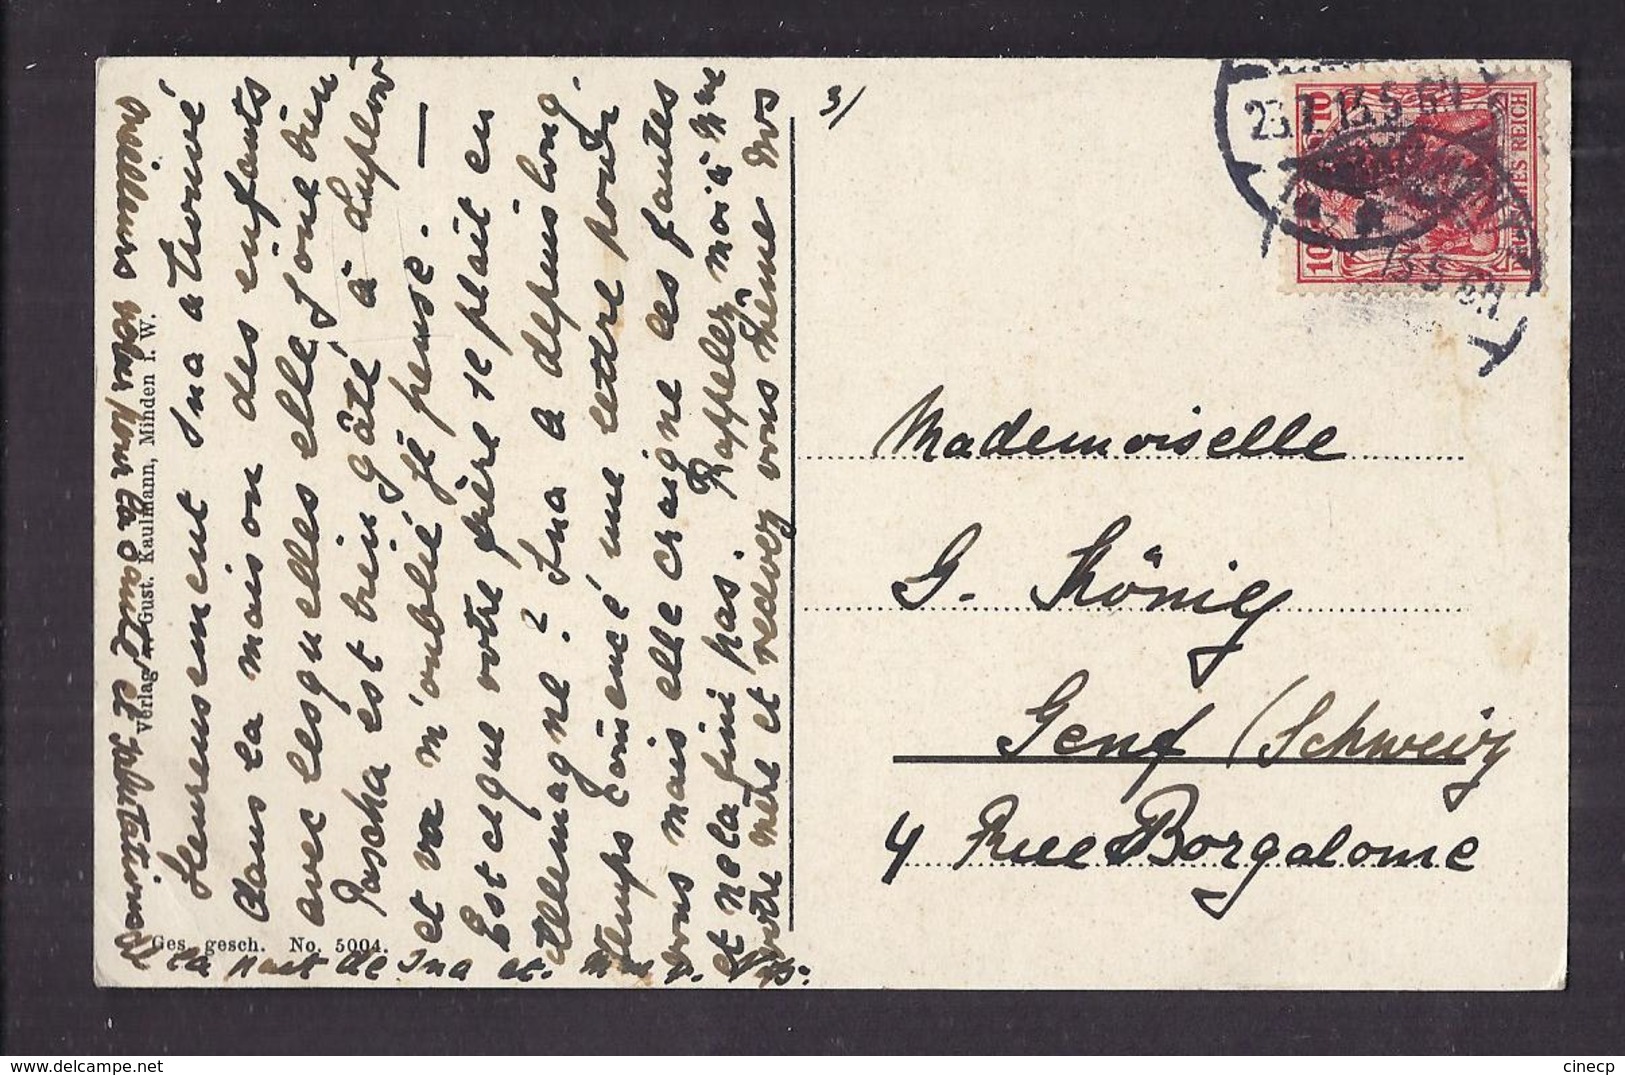 3/
Heureusement Ina a trouvé
dans la maison des enfants
avec lesquelles elle joue bien
Pascha est trein gâté à
et va m'oublié je pense. —
Est ce que votre frère se plait en
Allemagne? Ina a depuis long
temps comencé une lettre pour
vous mais elle craigne les fautes
et ne la fini pas. Rappellez moi à
votre mère et recevez vous même nos
meilleurs vœux pour la santé et salutations
de la part de Ina et.
Verlag v. Gust. Kaulmann, Minden i. W.
Ges. gesch. No. 5004.
10 10
REICH
23.7.13.5-6N
13 5-6N
Mademoiselle
G. König
Genf (Schweiz)
4 Rue Borgalome
cinecp